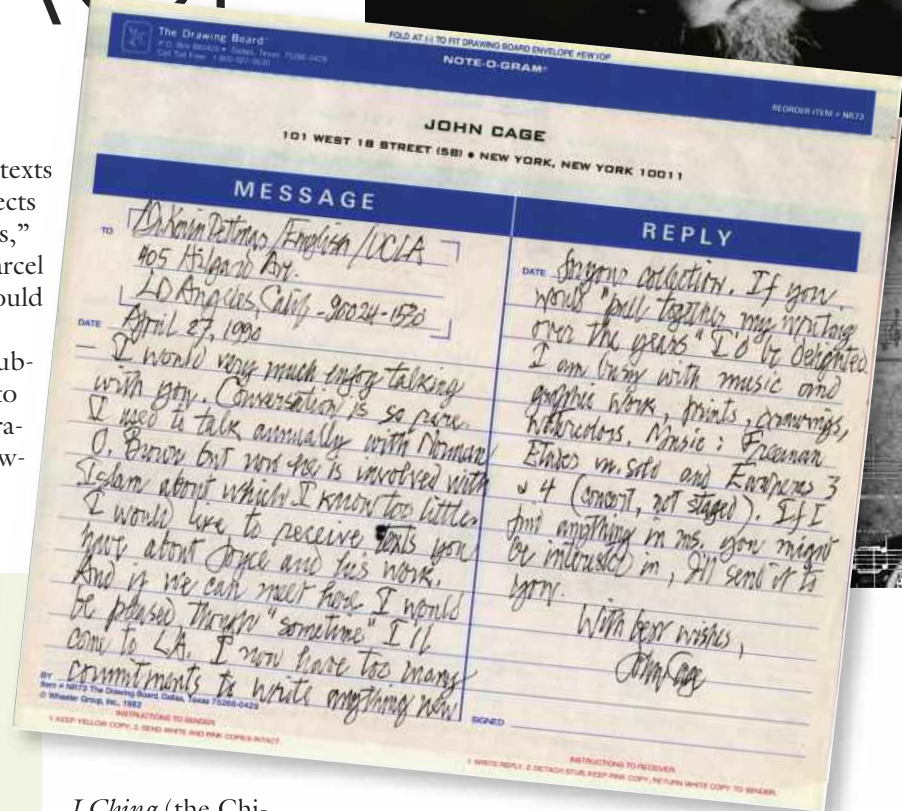 The Drawing Board
P.O. Box 660429 • Dallas, Texas 75266-0429
Call Toll Free
FOLD AT (-) TO FIT DRAWING BOARD ENVELOPE #EW10P
NOTE-O-GRAM®
REORDER ITEM # NR73
JOHN CAGE
101 WEST 18 STREET (5B) • NEW YORK, NEW YORK 10011
texts
ects
s,”
arcel
ould
ub-
to
ra-
w-
MESSAGE
TO
Dr Kevin Dettmar/English/UCLA
405 Hilgard Av.
LD Angeles, Calif - 90024-1530
DATE
April 27, 1990
I would very much enjoy talking
with you. Conversation is so rare.
I used to talk annually with Norman
O. Brown but now he is involved with
Islam about which I know too little.
I would like to receive texts you
have about Joyce and his work.
And if we can meet here I would
be pleased though "sometime" I'll
come to LA. I now have too many
commitments to write anything new
BY
Item # NR73 The Drawing Board, Dallas, Texas 75266-0429
© Wheeler Group, Inc., 1982
INSTRUCTIONS TO SENDER:
1. KEEP YELLOW COPY. 2. SEND WHITE AND PINK COPIES INTACT.
REPLY
DATE
for your collection. If you
would "pull together my writing
over the years" I'd be delighted.
I am busy with music and
graphic work, prints, drawings,
watercolors. Music: Freeman
Etudes vn. solo and Europeras 3
& 4 (concert, not staged). If I
find anything in ms. you might
be interested in, I'll send it to
you.
With best wishes,
John Cage
SIGNED
INSTRUCTIONS TO RECEIVER:
1. WRITE REPLY. 2. DETACH STUB, KEEP PINK COPY, RETURN WHITE COPY TO SENDER.
I Ching (the Chi-